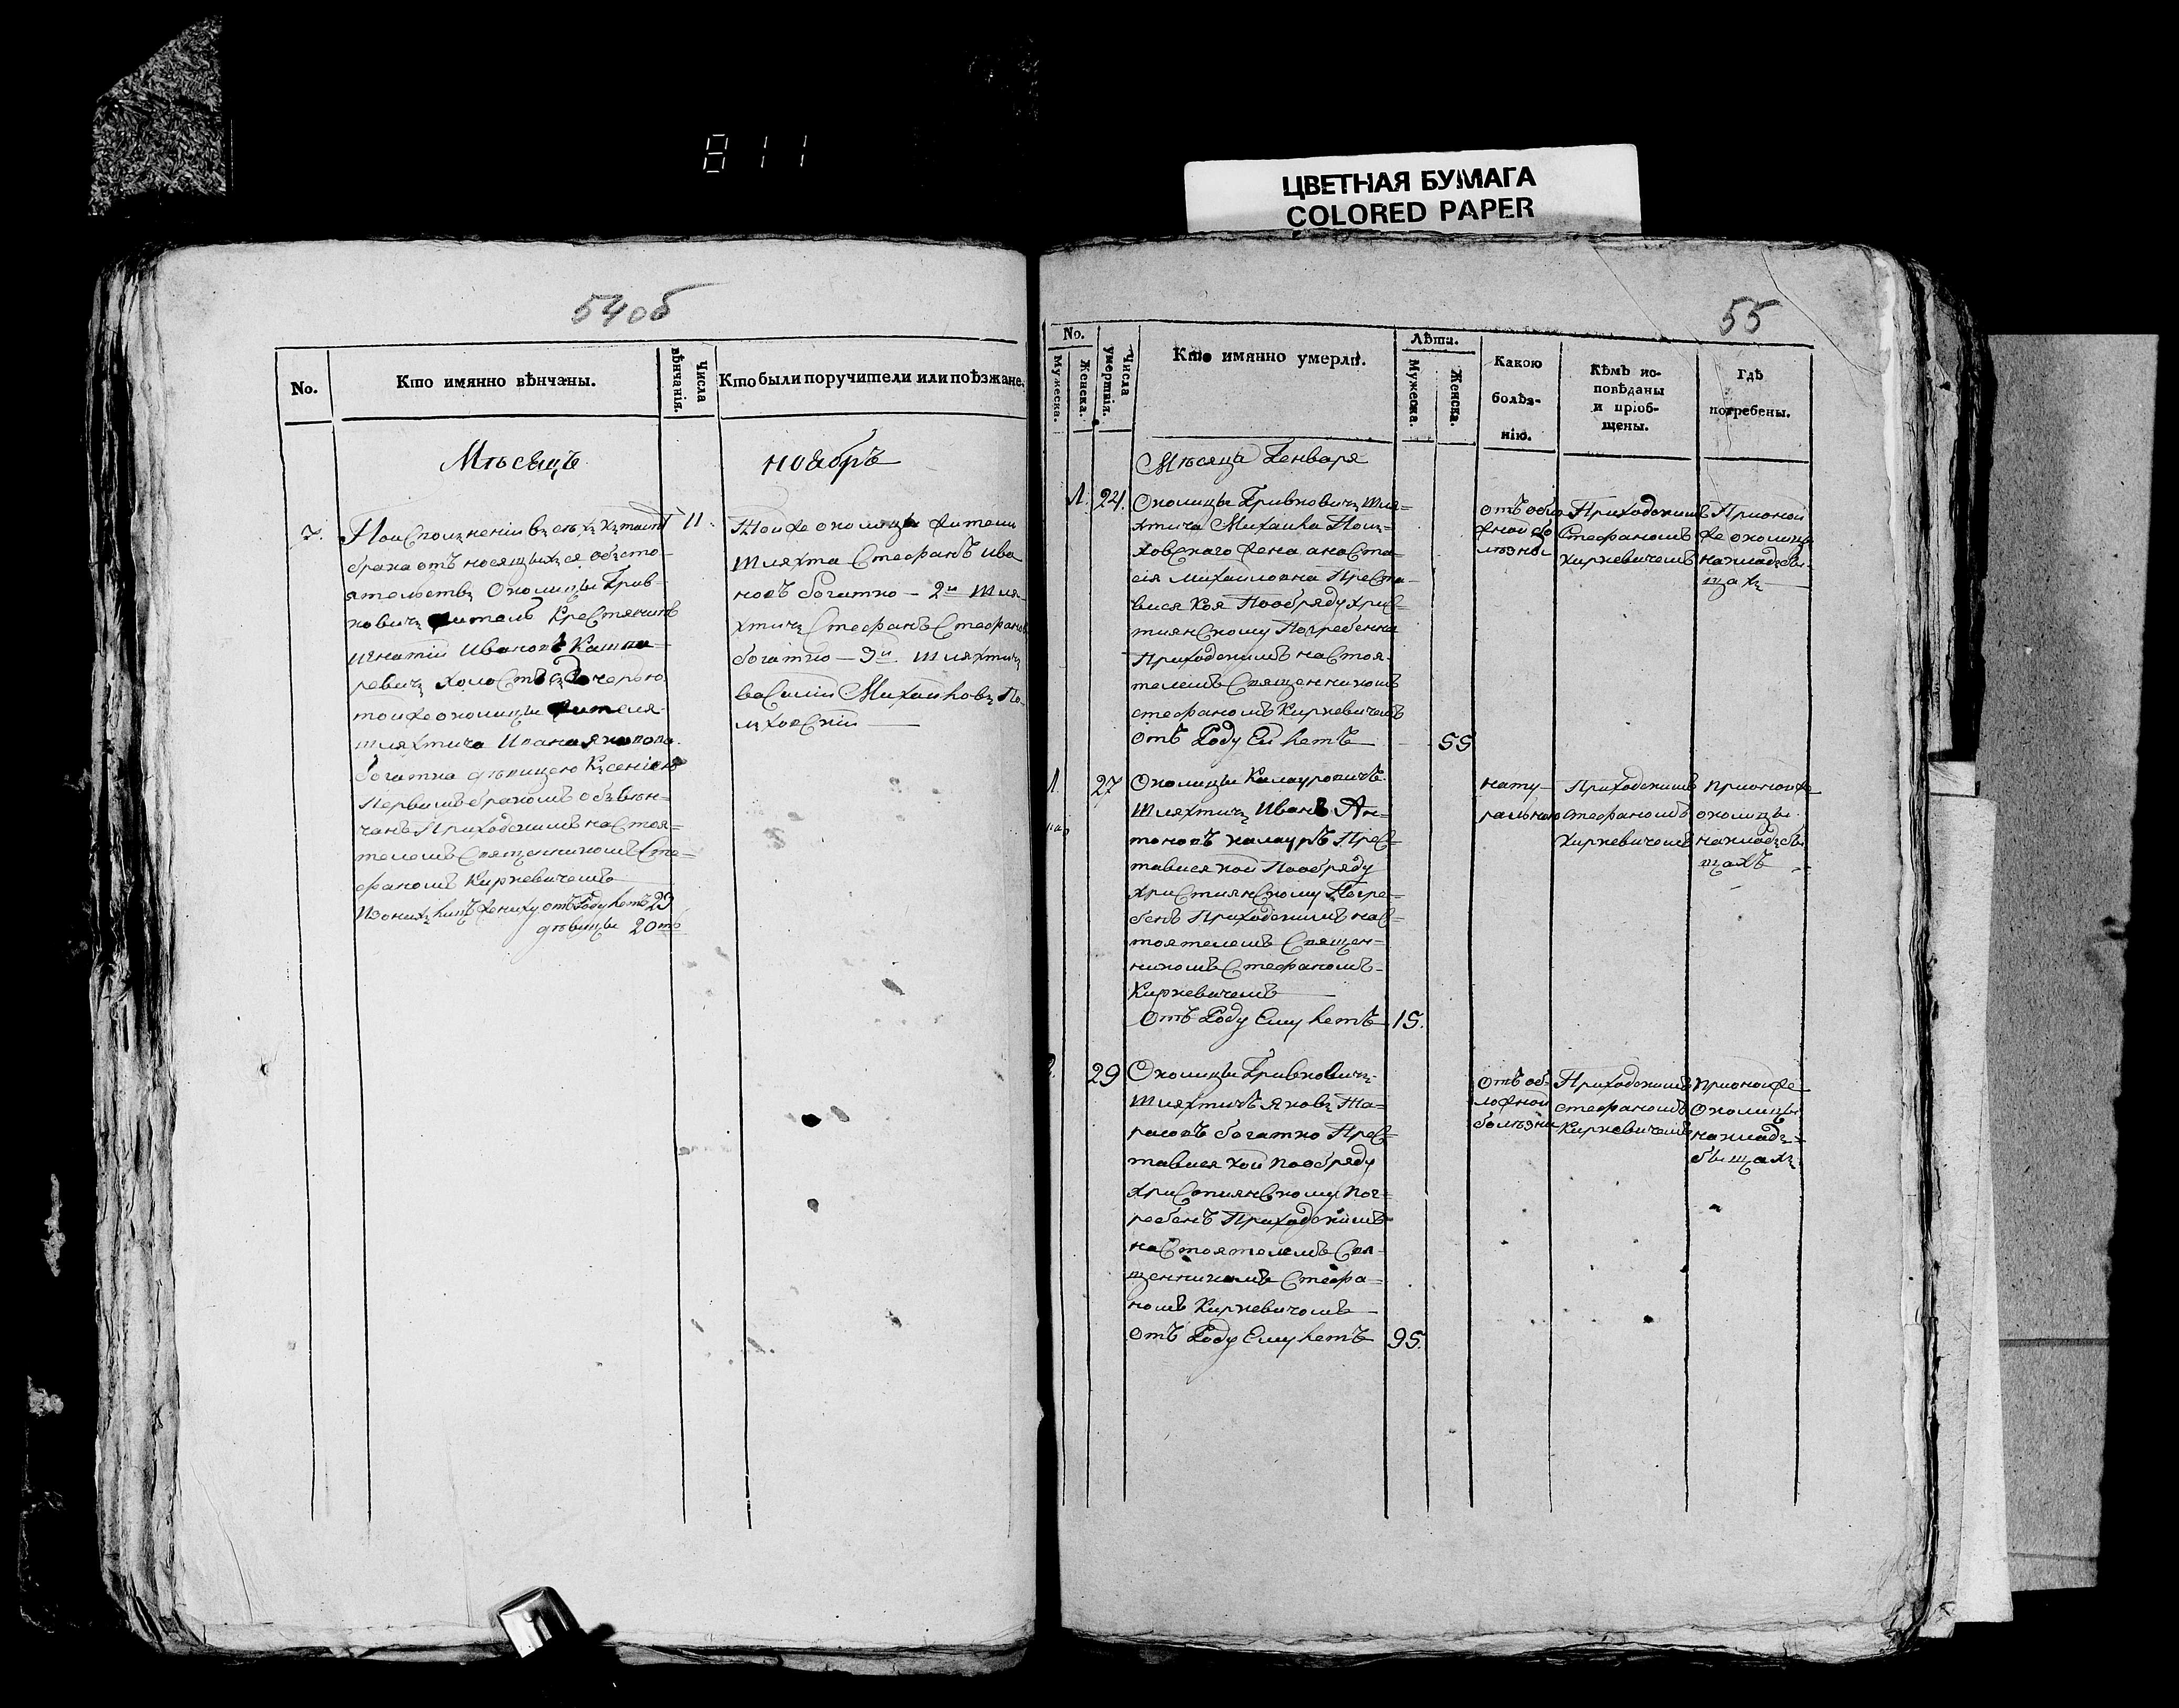 811
ЦВЕТНАЯ БУМАГА
COLORED PAPER
54об
No.
Кто имянно вѣнчаны.
Числа вѣнчанія.
Кто были поручители или поѣзжане.
Мѣсецъ
ноябръ
7.
11.
брака отъ носящихся обсто-
ятельствъ Околицы Грив-
ковичъ житель Крестянинъ
Игнатій Ивановъ Кашпа-
ревичъ холостъ съ дочерью
тойже околицы жителя
шляхтича Ивана Якопова
богатка дѣвицею Ксеніею
Первимъ бракомъ обѣвѣн-
чанъ Приходскимъ настоя=
телемъ Священникомъ Сте-
фаномъ Киркевичемъ
жениху отъ Роду летъ 29
дѣвицы 20тъ
Тойже околицы жители
шляхта Стефанъ Ива
новъ богатко — 2й шля-
хтичъ Стефанъ Стефановъ
богатко — 3й шляхтичъ
василій Михайловъ По-
лховскій
55
No.
Мужеска.
Женска.
Числа умертвія.
Кто имянно умерли.
Лѣта.
Мужеска.
Женска.
Какою болѣз-нію.
Кѣмъ ис-
повѣданы
и пріоб-
щены.
Гдѣ
погребены.
Мѣсяца Генваря
1. 24.
Околицы Гривковичъ шля=
хтича Михайла Пол=
ховскаго жена анаста-
сія Михаиловна Преста-
вися Коя Пообряду хрис-
тиянскому Погребенна
Приходскимъ настоя-
телемъ Священникомъ
стефаномъ Киркевичемъ
отъ Роду Ей летъ 55
Приходскимъ
Стефаномъ
Киркевичемъ
При оной
же околицы
на кладъби-
щахъ
1. 27
Околицы Калауровичъ
Шляхтичъ Иванъ Ан-
тоновъ калауръ Прес=
тавися кой Пообряду
християнскому Погре=
бенъ Приходскимъ нас=
тоятелемъ Священ=
никомъ Стефаномъ
Киркевичемъ
отъ Роду Ему летъ 15.
нату-
ральною
Приходскимъ
стефаномъ
Киркевичемъ
При оной же
околицы
на кладъби
щахъ
2. 29
Околицы Гривковичъ
шляхтичъ Яковъ Та=
расовъ богатко Прес=
тавися кой пообряду
християнскому пог=
ребенъ Приходскимъ
настоятелемъ Свя-
щенникомъ Стефа=
номъ Киркевичомъ
отъ Роду Ему летъ 95.
отъ об-
ложной
болѣзни
Приходскимъ
стефаномъ
Киркевичемъ
При оной же
Околицы
на кладъ=
бищахъ